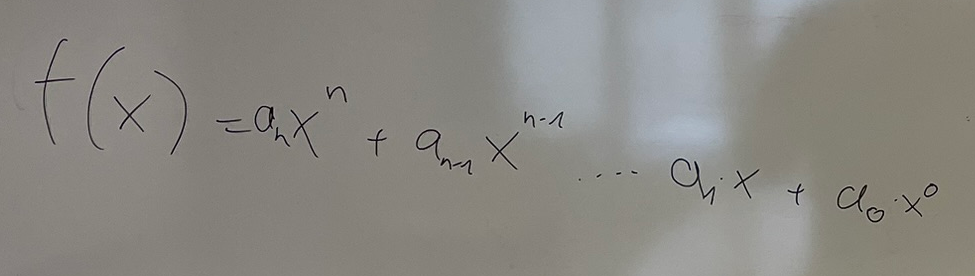 f(x) = aₙxⁿ + aₙ₋₁xⁿ⁻¹ .... a₁·x + a₀·x⁰